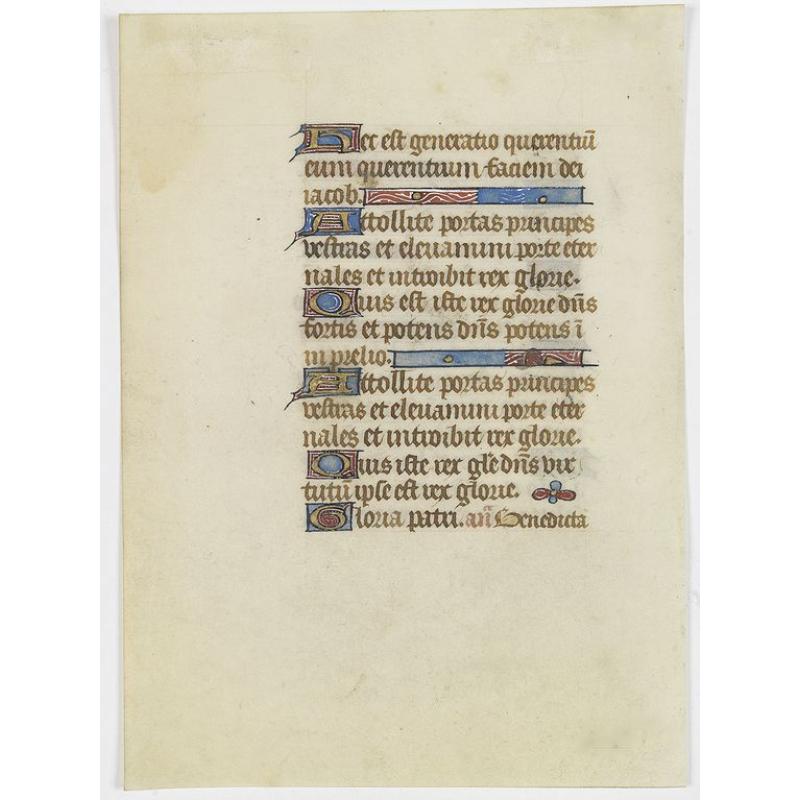 Hec est generatio querentiū
eum querentium faciem dei
iacob.
Attollite portas principes
vestras et elevamini porte eter
nales et introibit rex glorie.
Quis est iste rex glorie dn̄s
fortis et potens dn̄s potens ī
in prelio.
Attollite portas principes
vestras et elevamini porte eter
nales et introibit rex glorie.
Quis iste rex gl̄e dn̄s vir
tutū ipse est rex glorie.
Gloria patri. an̄ Benedicta